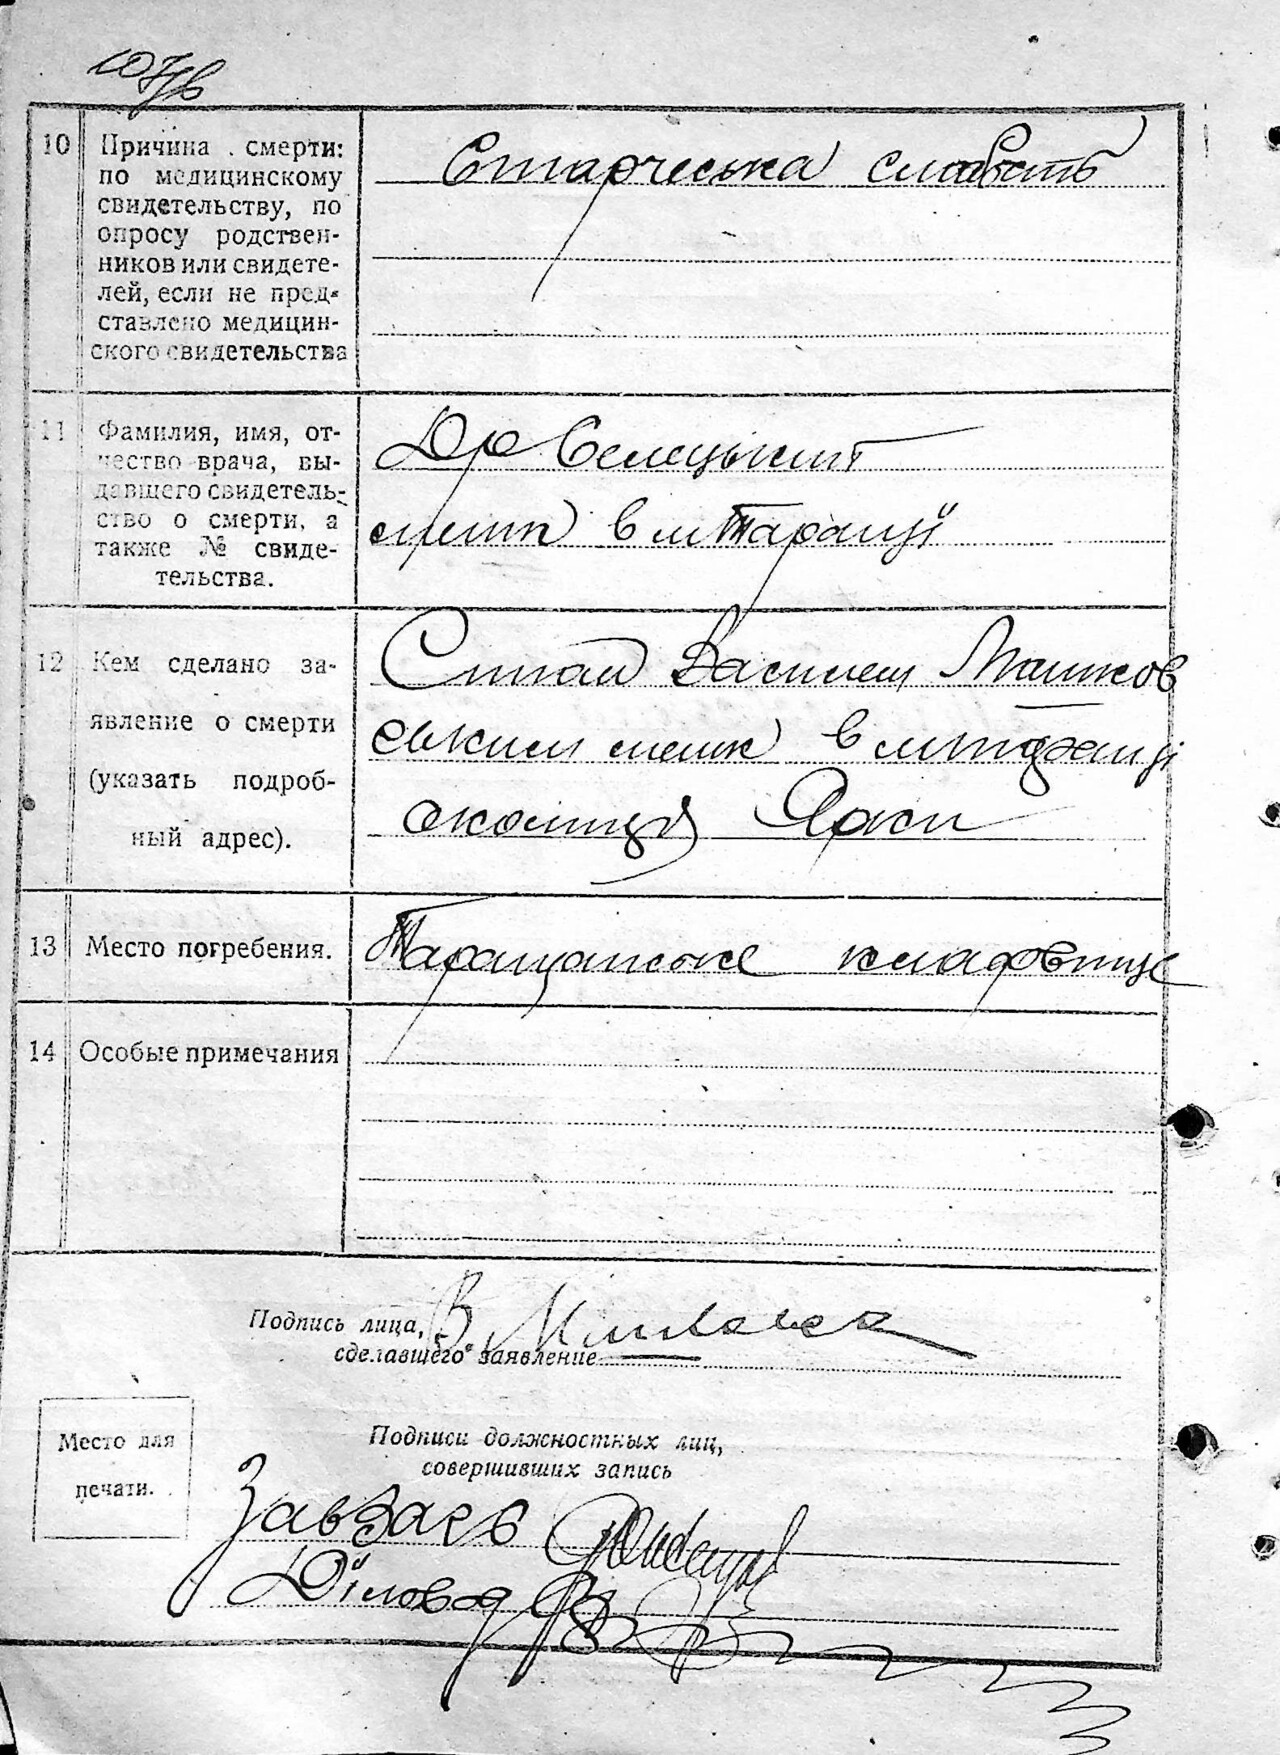 10
Причина смерти:
по медицинскому
свидетельству, по
опросу родствен-
ников или свидете-
лей, если не пред-
ставлено медицин-
ского свидетельства
Старческа слабость
11
Фамилия, имя, от-
чество врача, вы-
давшего свидетель-
ство о смерти, а
также № свиде-
тельства.
Др Селецький
в м Таращі
12
Кем сделано за-
явление о смерти
(указать подроб-
ный адрес).
Василем
ським меш в м
околиця
13
Место погребения.
Таращанське кладовище
14
Особые примечания
Подпись лица,
сделавшего заявление
В.
Место для
печати.
Подписи должностных лиц,
совершивших запись
Діловод